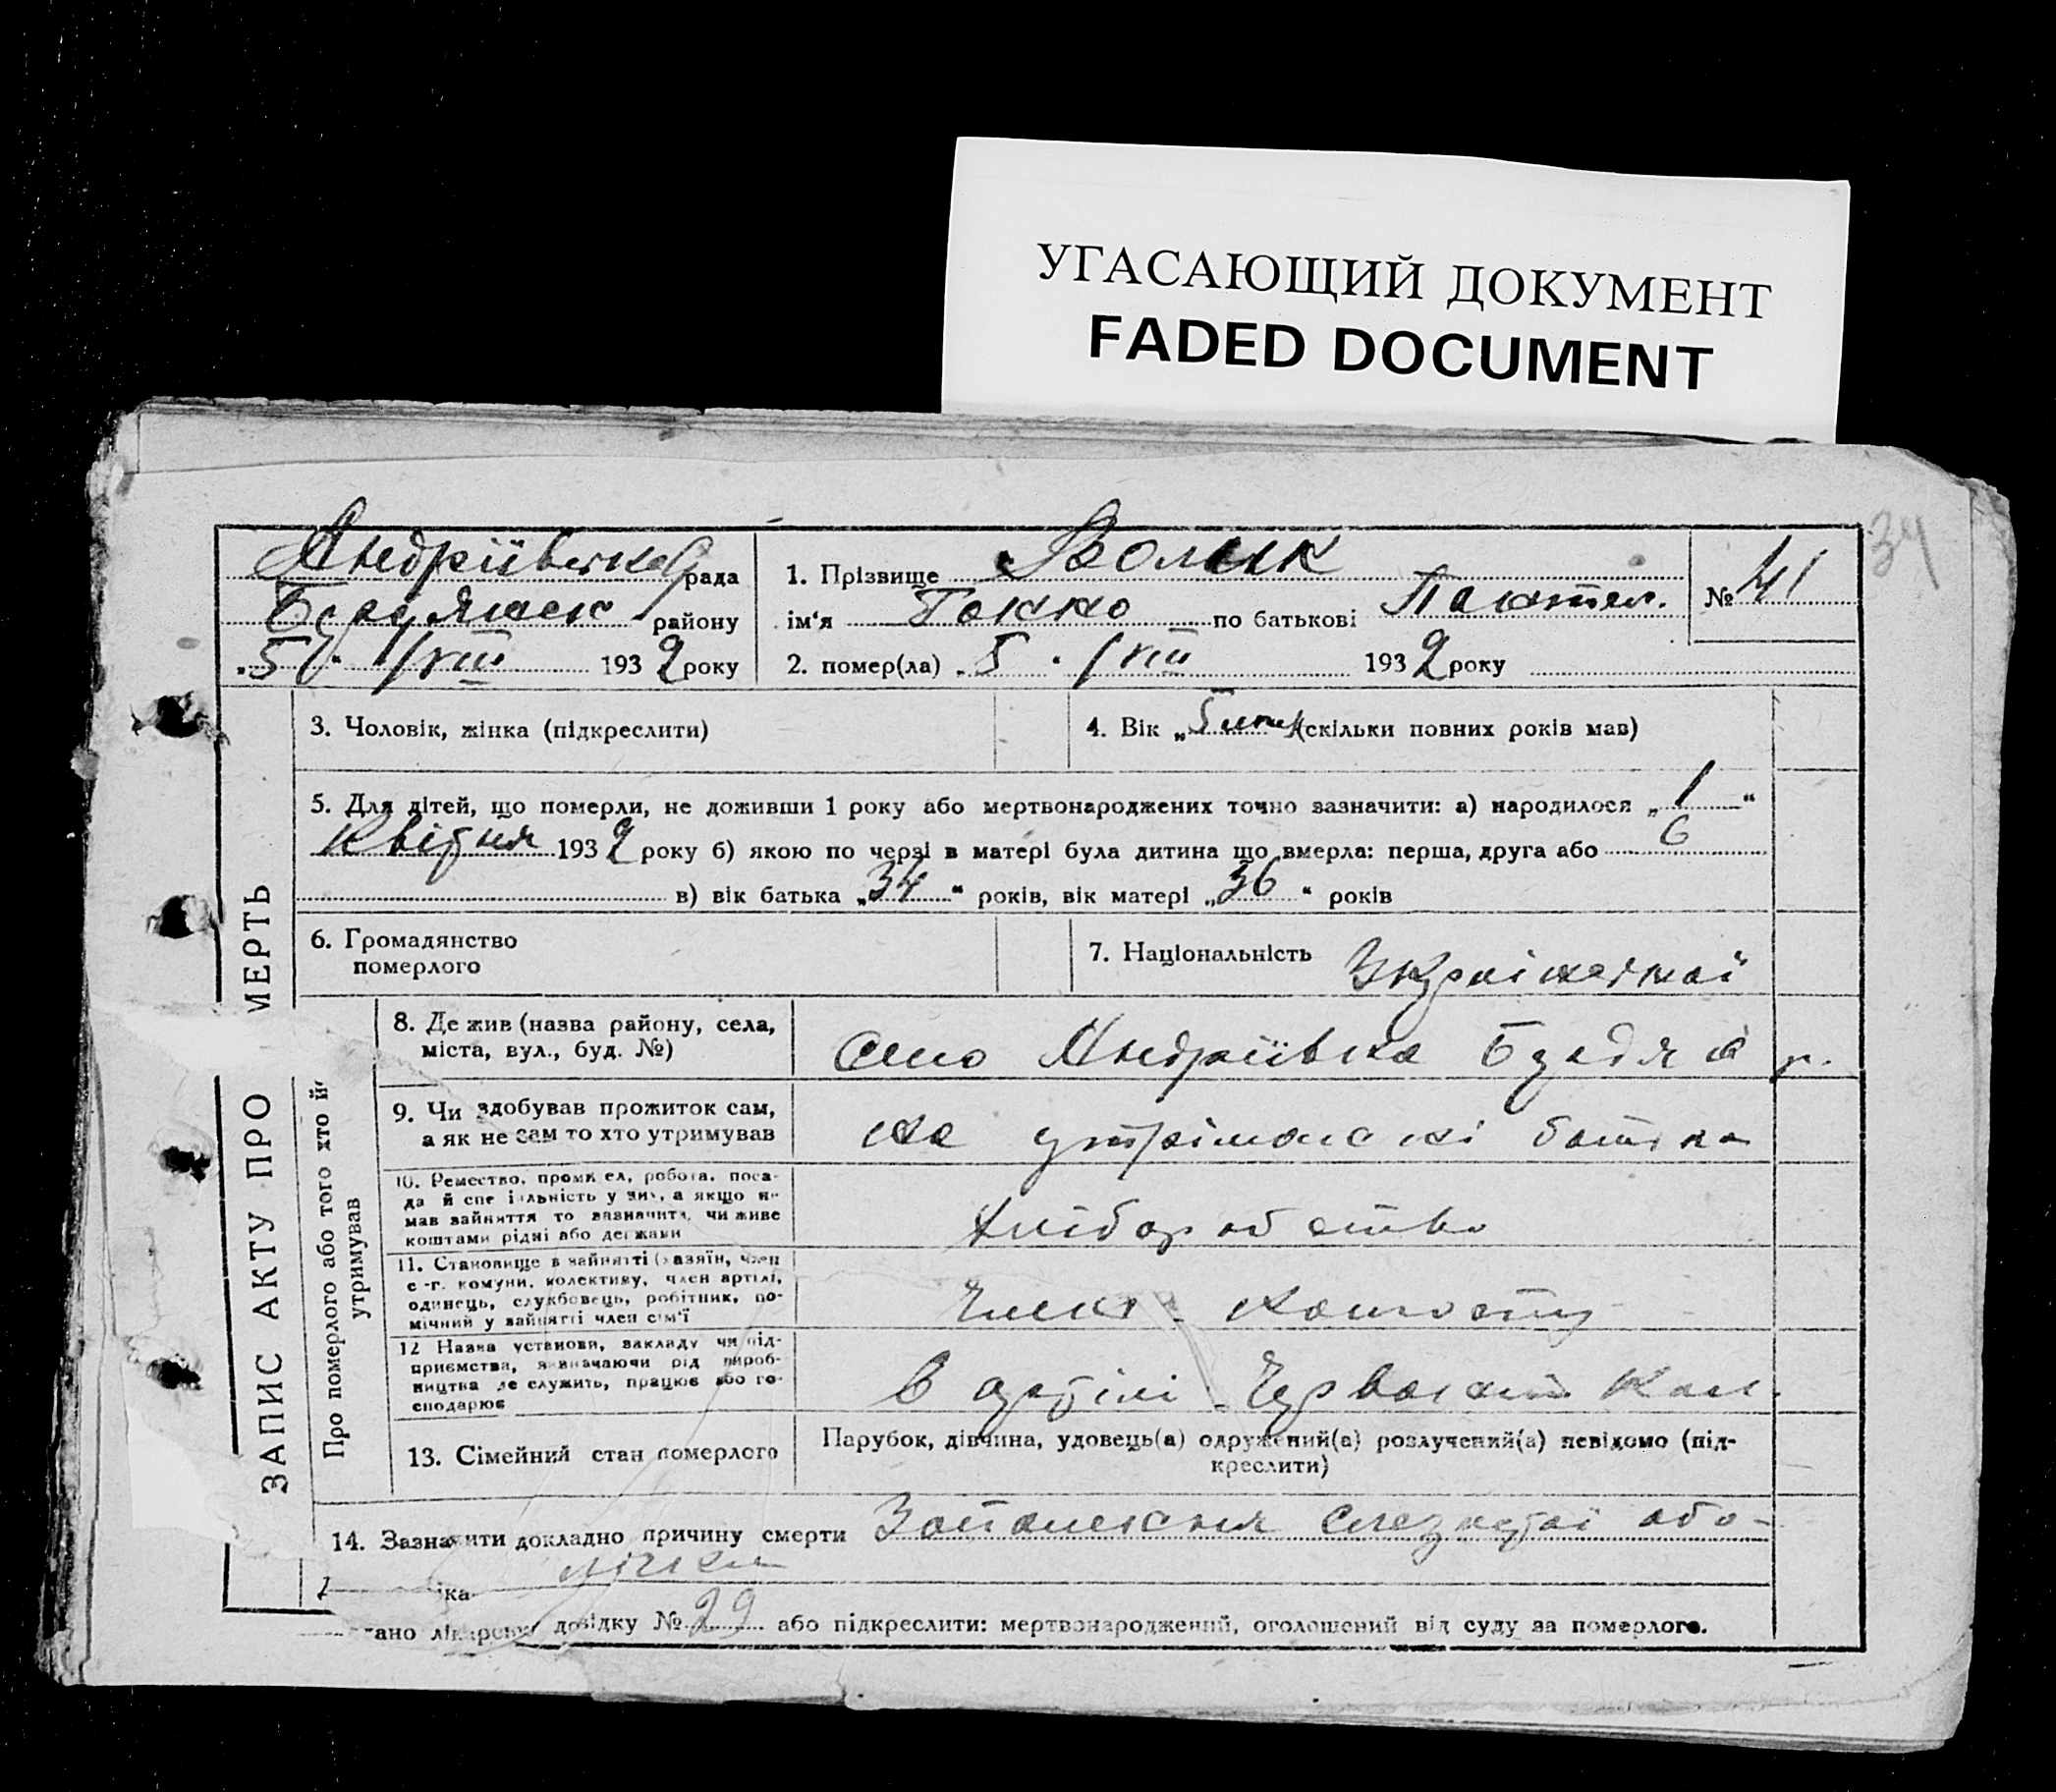 УГАСАЮЩИЙ ДОКУМЕНТ
FADED DOCUMENT
34
Андріївська рада
району
"5" VIII 1932 року
1. Прізвище Волик
№ 41
ім'я по батькові
2. помер(ла) "5" VIII 1932 року
ЗАПИС АКТУ ПРО МЕРТЬ
3. Чоловік, жінка (підкреслити)
4. Вік „5 (скільки повних років мав)
5. Для дітей, що померли, не доживши 1 року або мертвонароджених точно зазначити: а) народилося „1“
квітня 1932 року б) якою по черзі в матері була дитина що вмерла: перша, друга або 6
в) вік батька „34“ років, вік матері „36“ років
6. Громадянство
померлого
7. Національність
Про померлого або того хто й
утримував
8. Де жив (назва району, села,
міста, вул., буд. №)
Село Андріївка р.
9. Чи здобував прожиток сам,
а як не сам то хто утримував
на утріманні батька
10. Ремество, промисел, робота, поса-
да й спеціальність у них, а якщо не
мав зайняття то зазначити, чи живе
коштами рідні або держави
хліборобство
11. Становище в зайнятті (хазяїн, член
с.-г. комуни, колективу, член артілі,
одинець, службовець, робітник, по-
мічний у зайнятті член сім'ї
член
12 Назва установи, закладу чи під-
приємства, зазначаючи рід вироб-
ництва де служить, працює або го-
сподарює
в артілі
13. Сімейний стан померлого
Парубок, дівчина, удовець(а) одружений(а) розлучений(а) невідомо (під-
креслити)
14. Зазначити докладно причину смерти Запалення слезкутої обо-
іка
ано лікарську довідку № 29 або підкреслити: мертвонароджений, оголошений від суду за померлого.